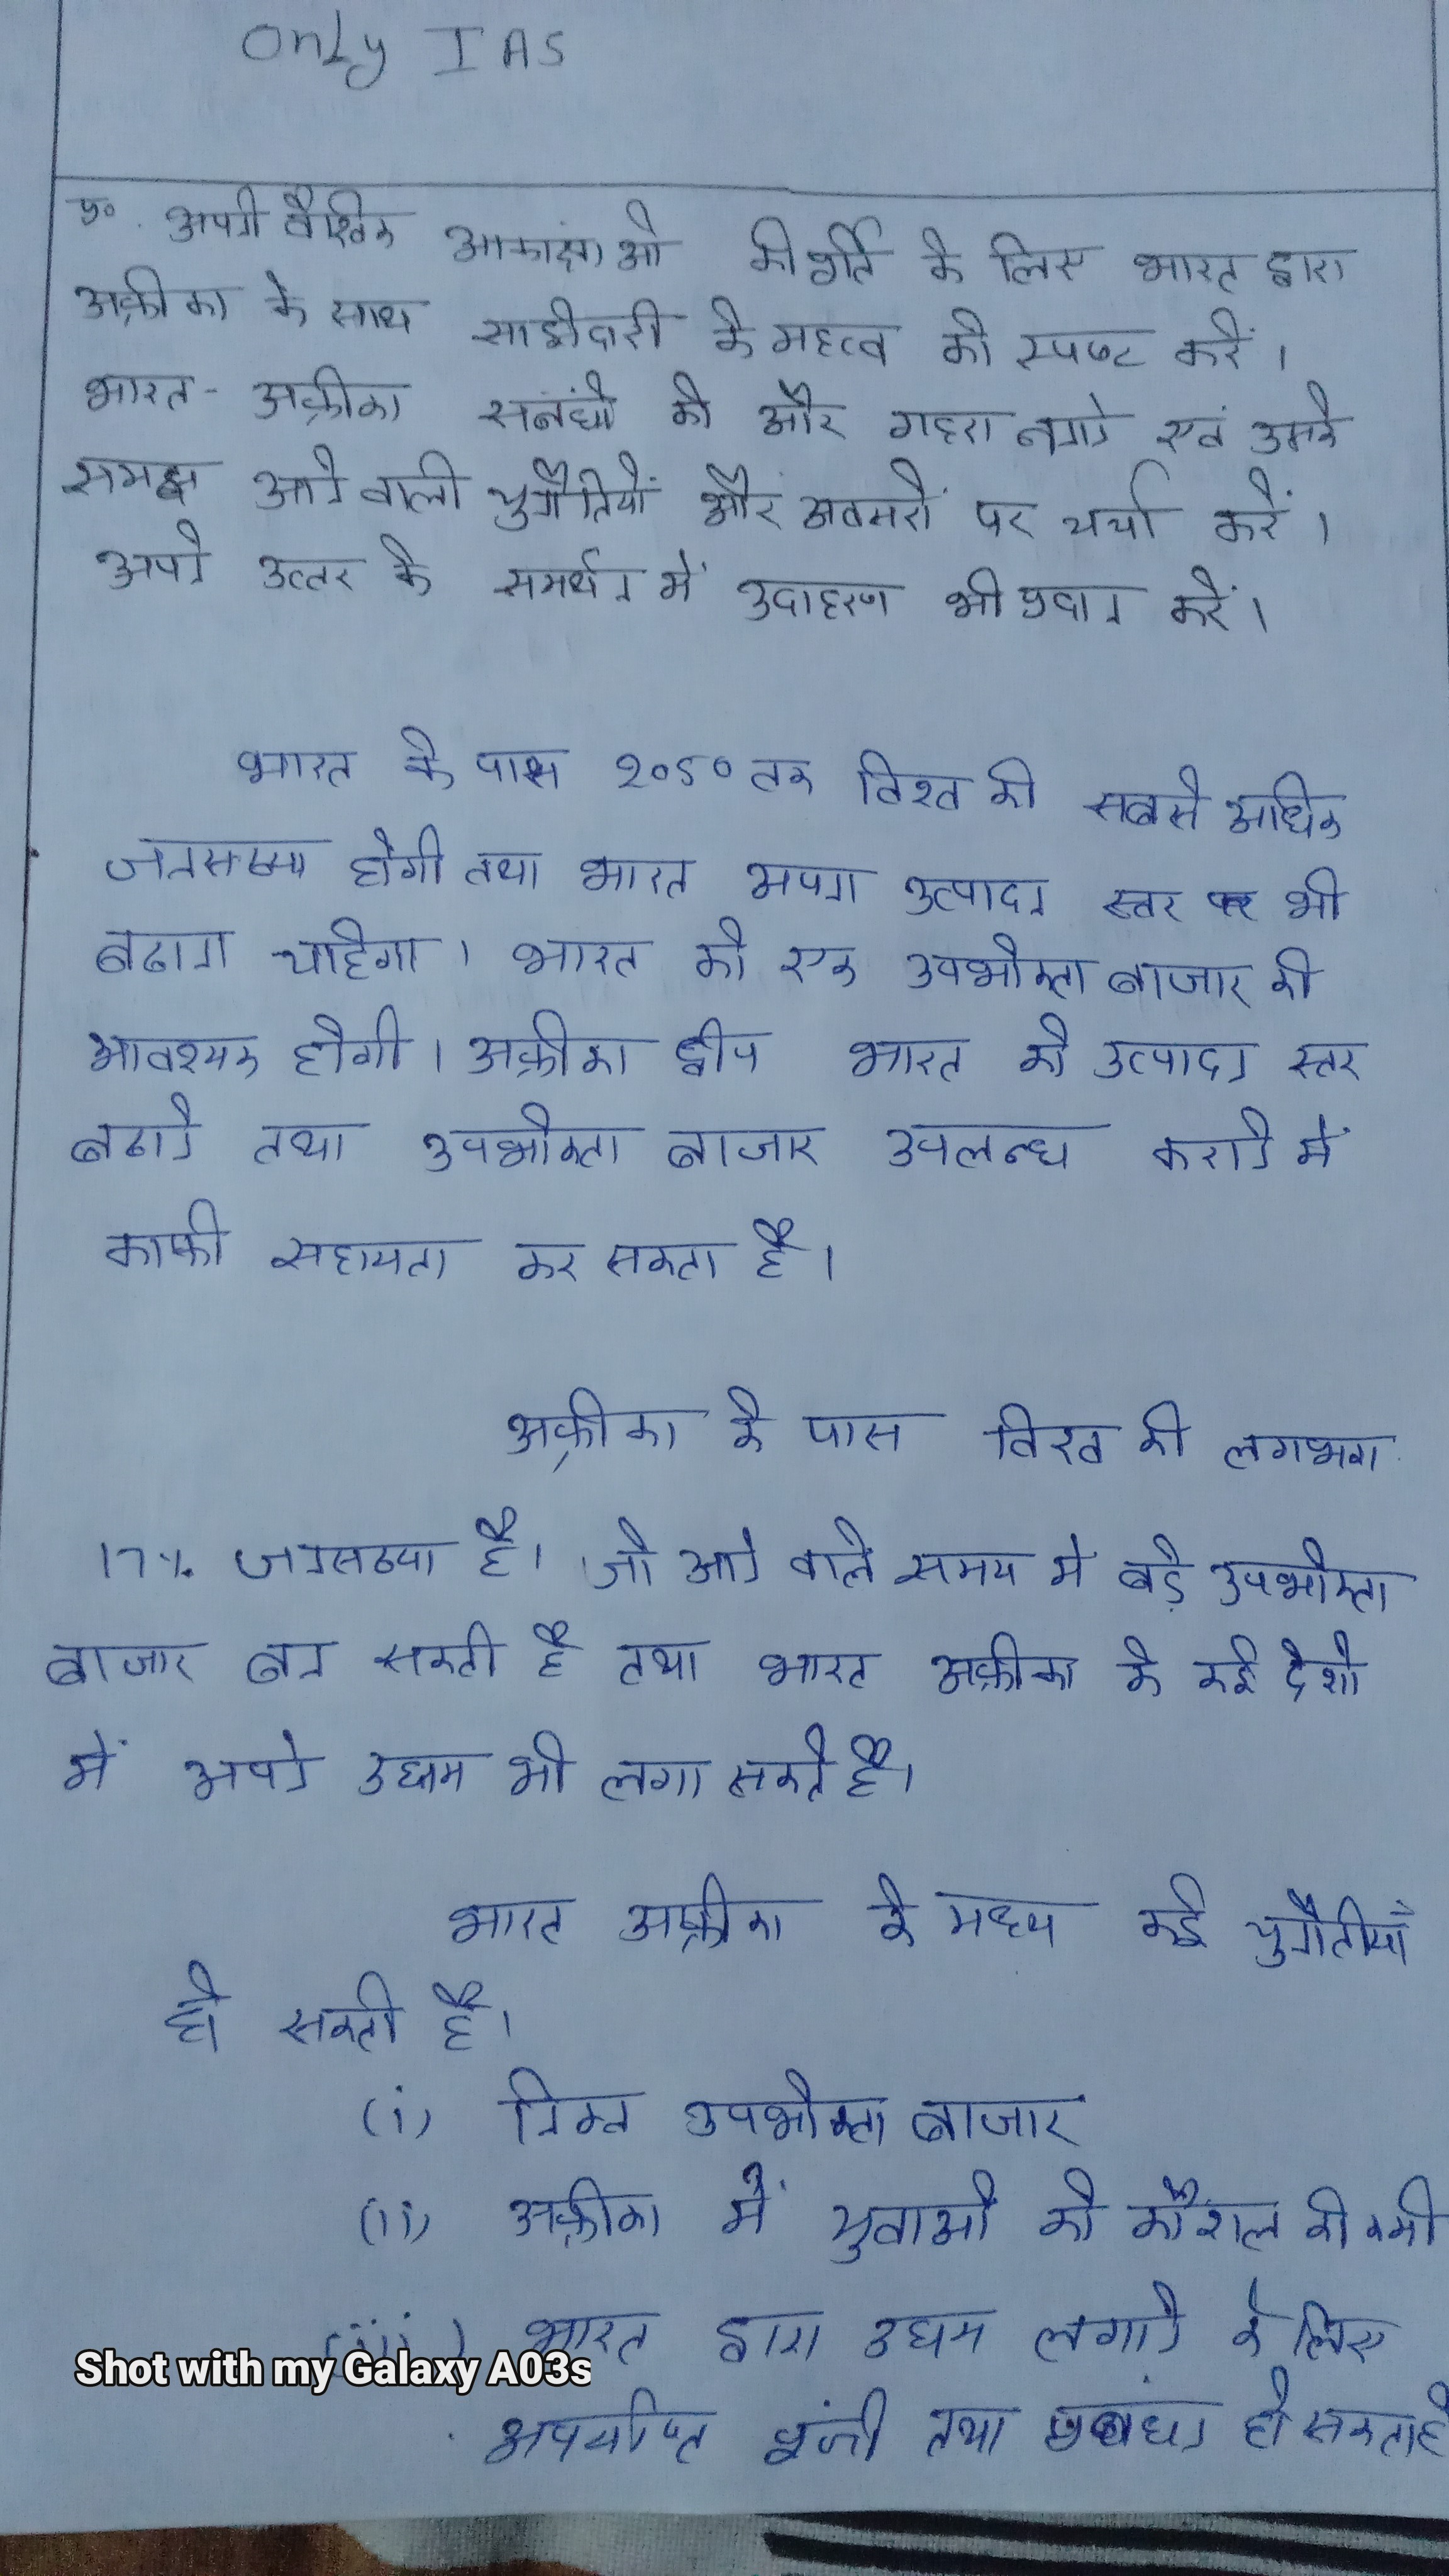 Only IAS
प्र०. अपनी वैश्विक आकांक्षाओ की पूर्ति के लिए भारत द्वारा
अफ्रीका के साथ साझेदारी के महत्व को स्पष्ट करें।
भारत - अफ्रीका सबंधो को और गहरा बनाने एवं उसके
समक्ष आने वाली चुनौतियों और अवसरों पर चर्चा करें।
अपने उत्तर के समर्थन में उदाहरण भी प्रदान करें।
भारत के पास 2050 तक विश्व की सबसे अधिक
जनसख्या होगी तथा भारत अपना उत्पादन स्तर भी
बढाना चाहेगा। भारत को एक उपभोक्ता बाजार की
आवश्यक होगी। अफ्रीका द्वीप भारत को उत्पादन स्तर
बढाने तथा उपभोक्ता बाजार उपलब्ध कराने में
काफी सहायता कर सकता है।
अफ्रीका के पास विश्व की लगभग
17% जनसख्या है। जो आने वाले समय मे बड़े उपभोक्ता
बाजार बन सकती है तथा भारत अफ्रीका के कई देशो
में अपने उद्यम भी लगा सकते है।
भारत अफ्रीका के मध्य कई चुनौतीयाँ
हो सकती है।
(i) निम्न उपभोक्ता बाजार
(ii) अफ्रीका में युवाओ को कौशल की कमी
(iii) भारत द्वारा उद्यम लगाने के लिए
अपर्याप्त पूंजी तथा प्रबंधन हो सकता है
Shot with my Galaxy A03s